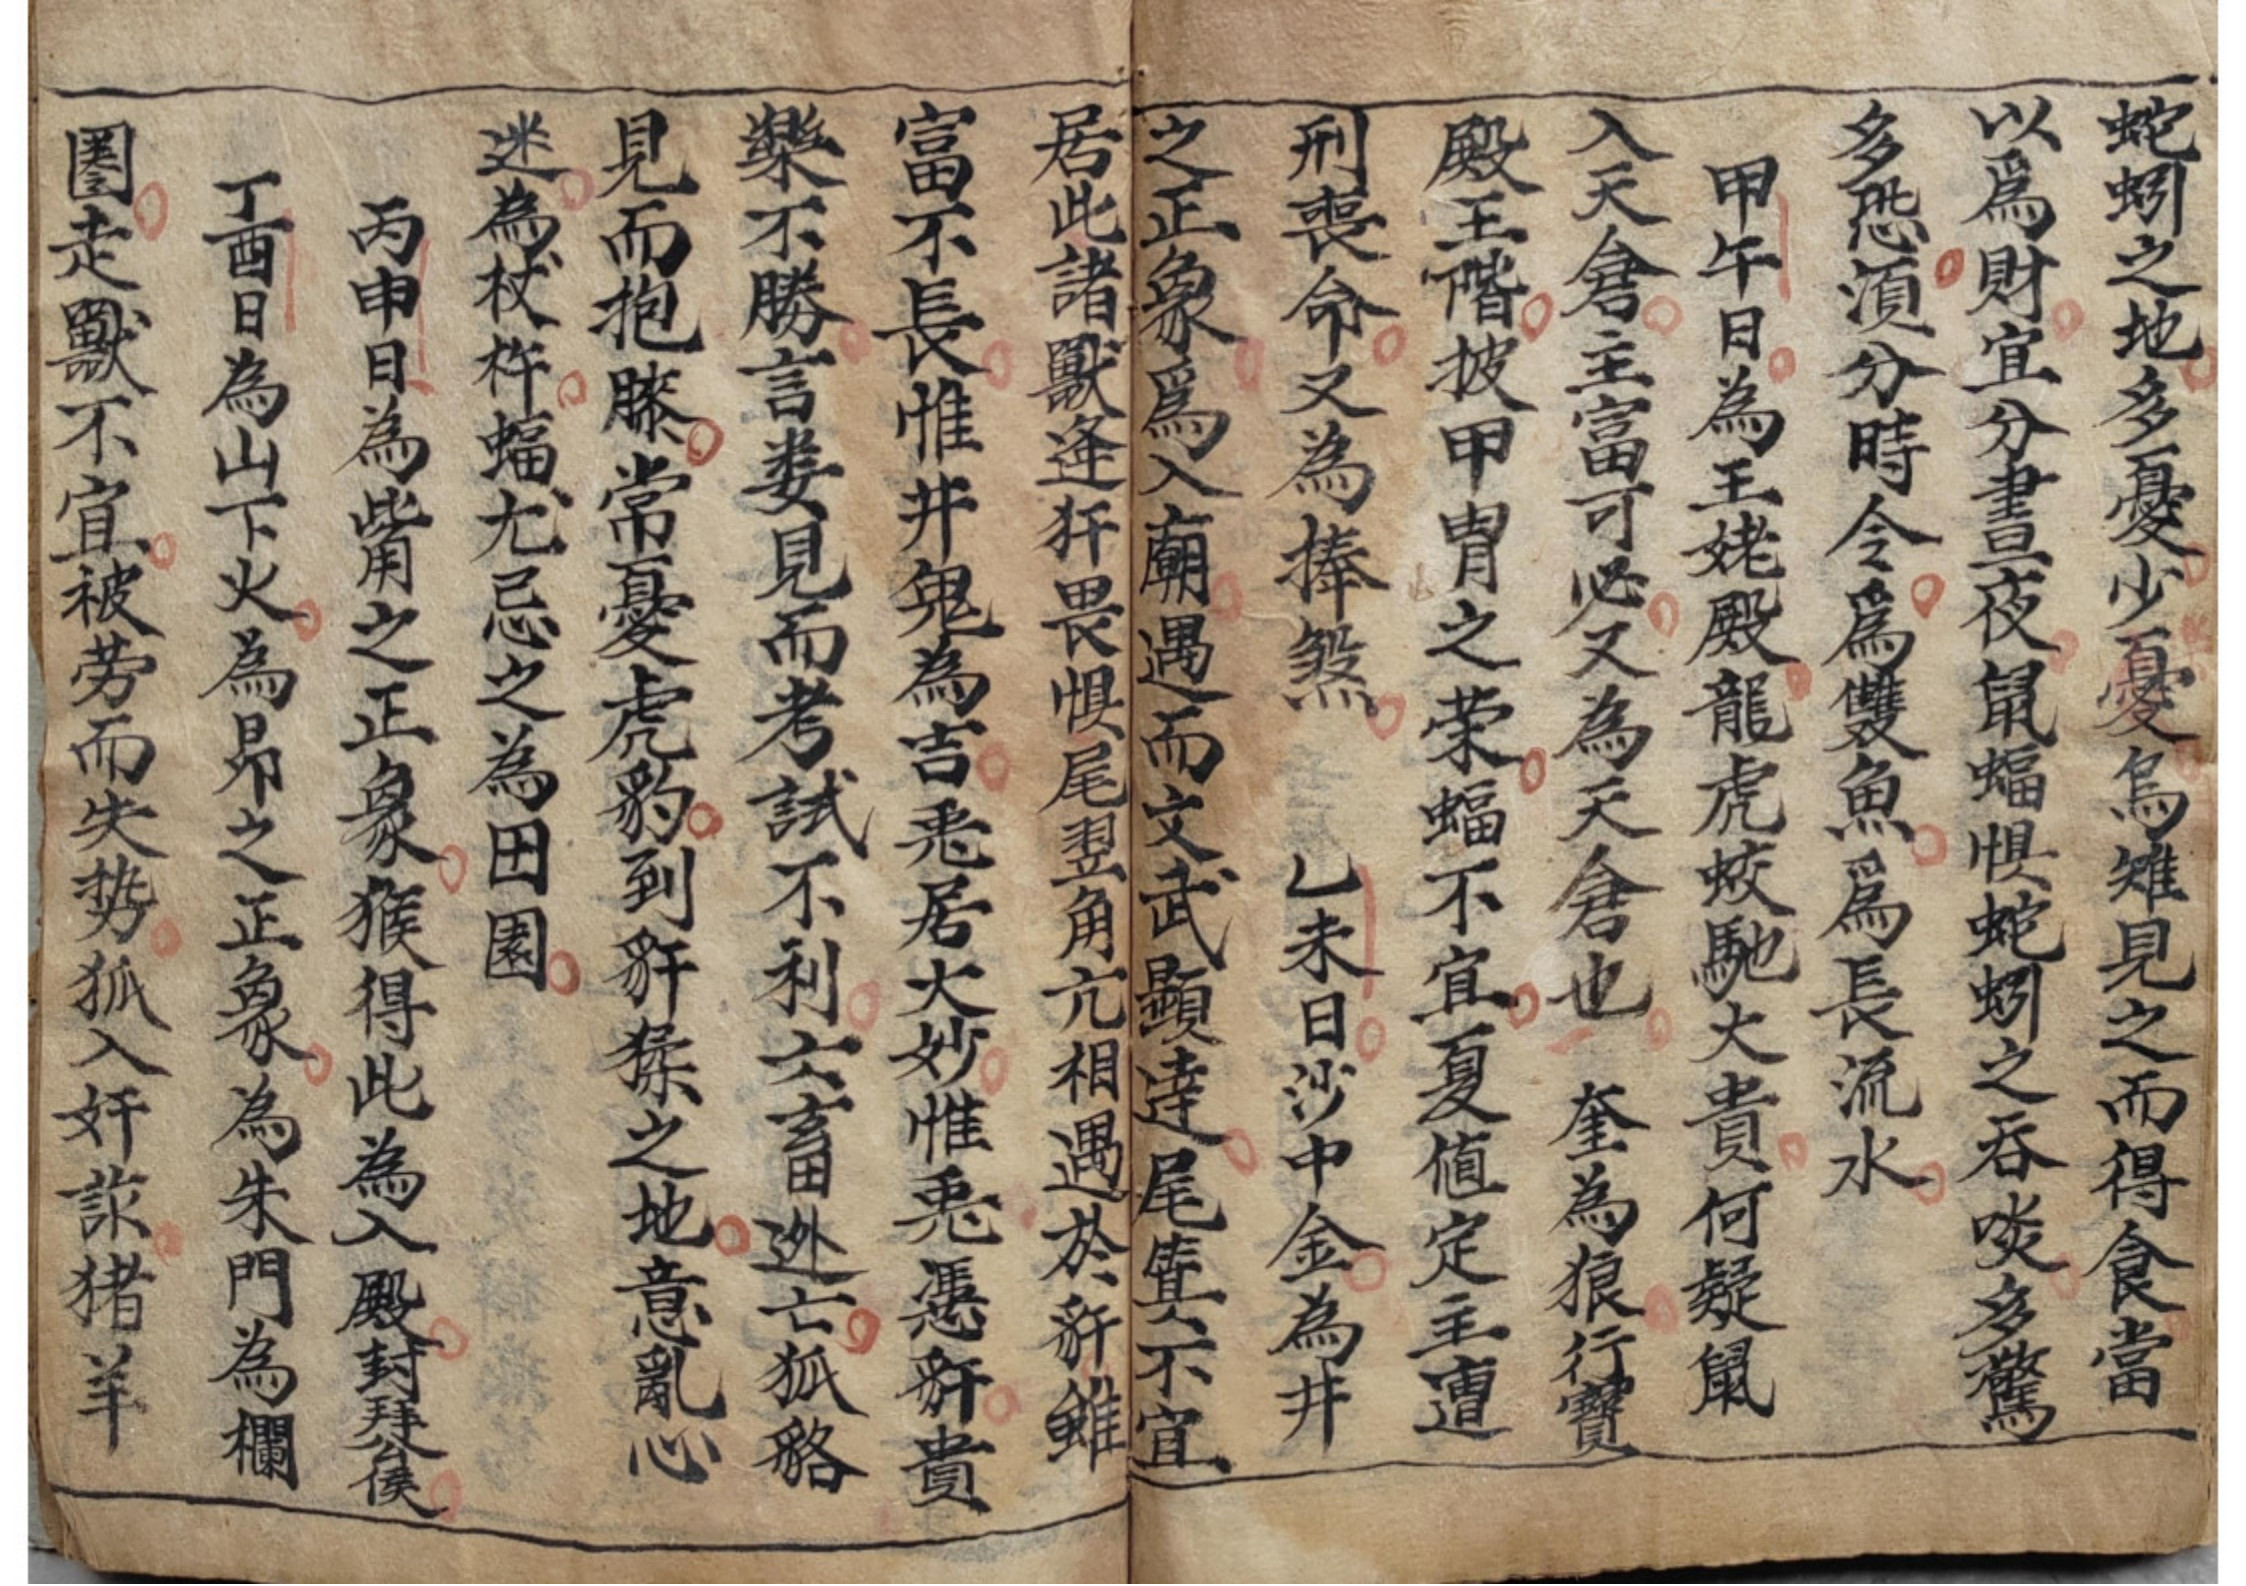 蛇蚓之地多憂少憂烏雉見之而得食當
以爲財宜分晝夜鼠蝠惧蛇蚓之吞啖多驚
多恐湏分時令爲雙魚爲長流水
甲午日為王姥殿龍虎蛟馳大貴何疑鼠
入天倉主富可必又為天倉也 奎為狼行寶
殿王階披甲胄之荣蝠不宜夏值定主遭
刑喪命又為捧煞 乙未日沙中金為井
之正象爲入廟遇而文武顯達尾不宜
居此諸獸逢犴畏惧尾翌角亢相遇於豻雖
富不長惟井鬼為吉兎居大妙惟兎憑豻貴
樂不勝言娄見而考試不利六畜迯亡狐貉
見而抱膝常憂虎豹到豻猱之地意亂心
迷為杖杵蝠尤忌之為田園
丙申日為觜之正象猴得此為入殿封拜公侯
丁酉日為山下火為昴之正象為朱門為欄
圈走獸不宜被劳而失势狐入奸謀猪羊